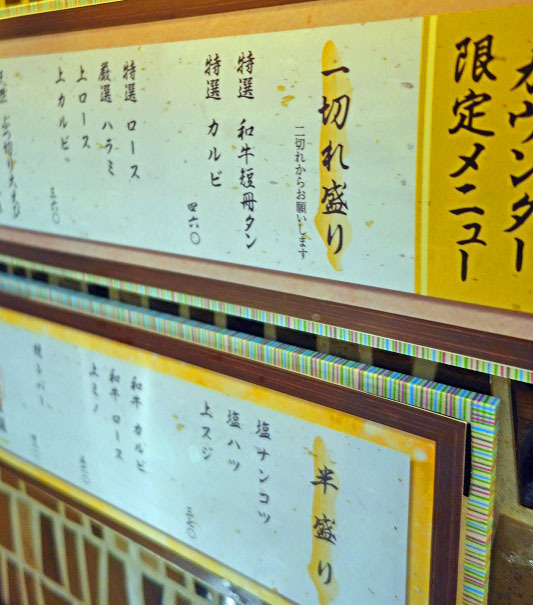 カウンター
限定メニュー
一切れ盛り
二切れからお願いします
特選 和牛短冊タン
特選 カルビ
四六〇
特選 ロース
厳選 ハラミ
上ロース
上カルビ
三六〇
半盛り
塩ナンコツ
塩ハツ
上スジ
三七〇
和牛 カルビ
和牛 ロース
上ミノ